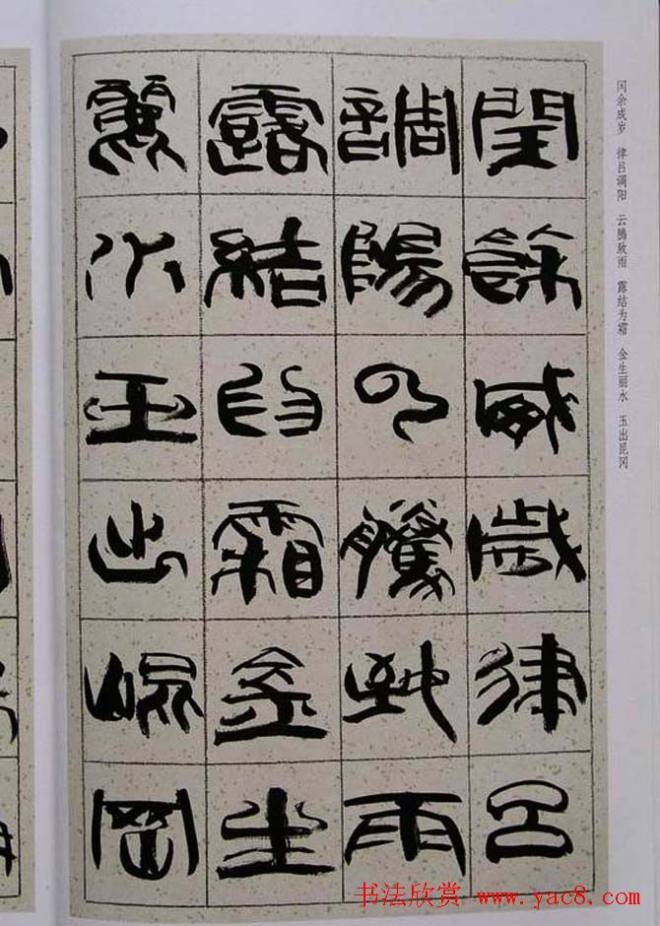 闰余成岁 律吕调阳 云腾致雨 露结为霜 金生丽水 玉出昆冈
閏餘成歲律呂
調陽云騰致雨
露結為霜金生
麗水玉出崐岡
书法欣赏 www.yac8.com